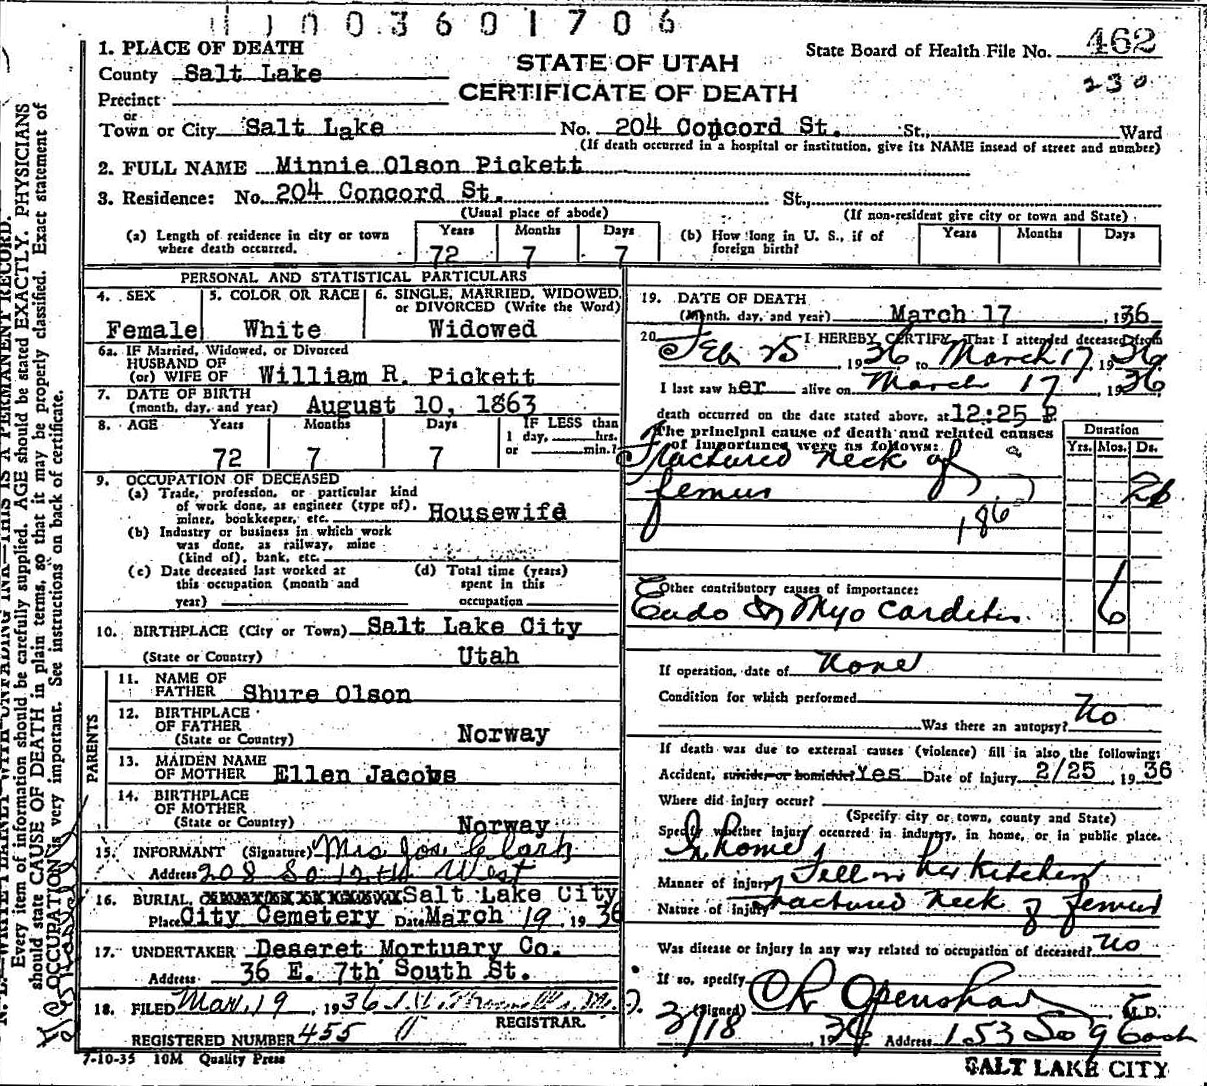 1 1 0 0 3 6 0 1 7 0 6
1. PLACE OF DEATH
STATE OF UTAH
CERTIFICATE OF DEATH
State Board of Health File No. 462
230
County Salt Lake
Precinct
or
Town or City Salt Lake No. 204 Concord St. St., Ward
(If death occurred in a hospital or institution, give its NAME insead of street and number)
2. FULL NAME Minnie Olson Pickett
3. Residence: No. 204 Concord St. St.,
(Usual place of abode) (If non-resident give city or town and State)
(a) Length of residence in city or town where death occurred. Years 72 Months 7 Days 7
(b) How long in U. S., if of foreign birth? Years Months Days
PERSONAL AND STATISTICAL PARTICULARS
4. SEX Female
5. COLOR OR RACE White
6. SINGLE, MARRIED, WIDOWED, or DIVORCED (Write the Word) Widowed
6a. IF Married, Widowed, or Divorced
HUSBAND OF
(or) WIFE OF William R. Pickett
7. DATE OF BIRTH
(month, day, and year) August 10, 1863
8. AGE Years 72 Months 7 Days 7
IF LESS than 1 day, hrs. or min.?
9. OCCUPATION OF DECEASED
(a) Trade, profession, or particular kind
of work done, as engineer (type of),
miner, bookkeeper, etc. Housewife
(b) Industry or business in which work
was done, as railway, mine
(kind of), bank, etc.
(c) Date deceased last worked at
this occupation (month and
year)
(d) Total time (years)
spent in this
occupation
10. BIRTHPLACE (City or Town) Salt Lake City
(State or Country) Utah
PARENTS
11. NAME OF
FATHER Shure Olson
12. BIRTHPLACE
OF FATHER
(State or Country) Norway
13. MAIDEN NAME
OF MOTHER Ellen Jacobs
14. BIRTHPLACE
OF MOTHER
(State or Country) Norway
15. INFORMANT (Signature) Mrs Jos Clark
Address 208 So 12th West
16. BURIAL, Salt Lake City
Place City Cemetery Date March 19, 1936
17. UNDERTAKER Deseret Mortuary Co.
Address 36 E. 7th South St.
18. FILED Mar. 19, 1936 M. D.
REGISTRAR.
REGISTERED NUMBER 455
7-10-35 10M Quality Press
19. DATE OF DEATH
(Month, day, and year) March 17, 1936
20. I HEREBY CERTIFY, That I attended deceased from
Feb 25 1936 to March 17, 1936
I last saw her alive on March 17, 1936
death occurred on the date stated above, at 12:25 P
The principal cause of death and related causes
of importance were as follows:
Duration
Yrs. Mos. Ds.
Fractured neck of
femur
186
Other contributory causes of importance:
Endo & Myo Carditis 6
If operation, date of None
Condition for which performed
Was there an autopsy? No
If death was due to external causes (violence) fill in also the following:
Accident, suicide or homicide? Yes Date of Injury 2/25 1936
Where did injury occur?
(Specify city or town, county and State)
Specify whether injury occurred in industry, in home, or in public place.
In home
Manner of injury Fell in her kitchen
Nature of injury Fractured neck of femur
Was disease or injury in any way related to occupation of deceased? No
If so, specify
(Signed) Openshaw M.D.
3/18 1936 Address 153 So 9 East
SALT LAKE CITY
N. B.—WRITE PLAINLY WITH UNFADING INK—THIS IS A PERMANENT RECORD.
Every item of information should be carefully supplied. AGE should be stated EXACTLY. PHYSICIANS
should state CAUSE OF DEATH in plain terms, so that it may be properly classified. Exact statement of
OCCUPATION is very important. See instructions on back of certificate.